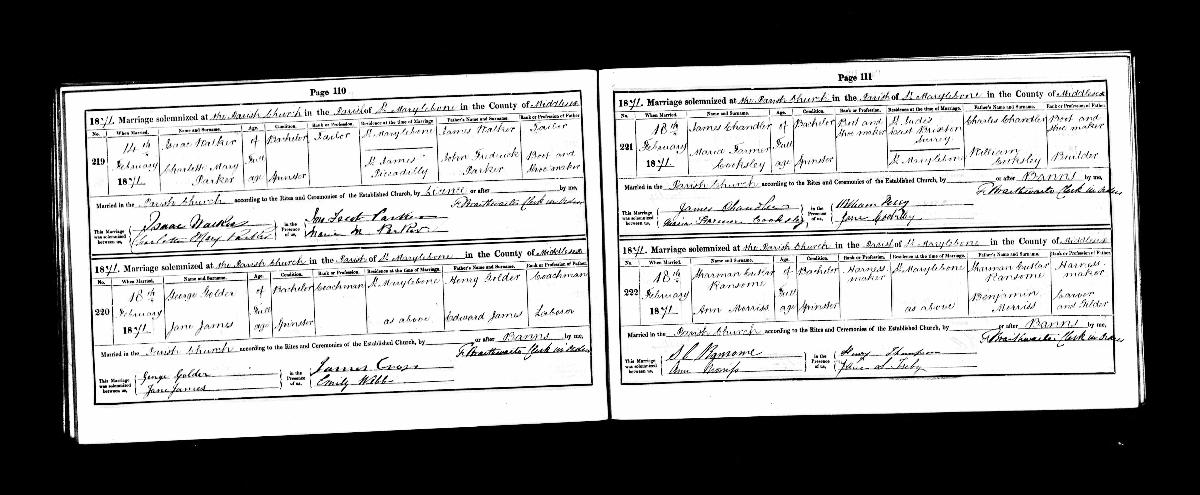 Page 110
1871. Marriage solemnized at the Parish Church in the Parish of St Marylebone in the County of Middlesex
No. When Married. Name and Surname. Age. Condition. Rank or Profession. Residence at the time of Marriage. Father's Name and Surname. Rank or Profession of Father.
219 14th February 1871. Isaac Walker of Bachelor Tailor St Marylebone James Walker Tailor
Charlotte Mary Parker Full age Spinster St James Piccadilly John Fredrick Parker Boot and Shoe maker
Married in the Parish Church according to the Rites and Ceremonies of the Established Church, by Licence or after by me,
F. Braithwaite Clerk in Orders
This Marriage was solemnized between us, Isaac Walker Charlotte Mary Parker in the Presence of us, Parker Maria M Parker
1871. Marriage solemnized at the Parish Church in the Parish of St Marylebone in the County of Middlesex
No. When Married. Name and Surname. Age. Condition. Rank or Profession. Residence at the time of Marriage. Father's Name and Surname. Rank or Profession of Father.
220 18th February 1871. George Golder of Bachelor Coachman St Marylebone Henry Golder Coachman
Jane James Full age Spinster as above Edward James Laborer
Married in the Parish Church according to the Rites and Ceremonies of the Established Church, by or after Banns by me,
F. Braithwaite Clerk in Orders
This Marriage was solemnized between us, George Golder Jane James in the Presence of us, James Cross Emily Webb
Page 111
1871. Marriage solemnized at the Parish Church in the Parish of St Marylebone in the County of Middlesex
No. When Married. Name and Surname. Age. Condition. Rank or Profession. Residence at the time of Marriage. Father's Name and Surname. Rank or Profession of Father.
221 18th February 1871. James Chandler of Bachelor Boot and Shoe maker St Jude's East Brixton Surrey Charles Chandler Boot and Shoe maker
Maria Cooksley Full age Spinster St Marylebone William Cooksley Builder
Married in the Parish Church according to the Rites and Ceremonies of the Established Church, by or after Banns by me,
F. Braithwaite Clerk in Orders
This Marriage was solemnized between us, James Chandler Maria Cooksley in the Presence of us, William Perry Jane
1871. Marriage solemnized at the Parish Church in the Parish of St Marylebone in the County of Middlesex
No. When Married. Name and Surname. Age. Condition. Rank or Profession. Residence at the time of Marriage. Father's Name and Surname. Rank or Profession of Father.
222 18th February 1871. Sharman Cutlar Ransome of Bachelor Harness maker St Marylebone Sharman Cutlar Ransome Harness maker
Ann Morriss Full age Spinster as above Benjamin Morriss Carver and Gilder
Married in the Parish Church according to the Rites and Ceremonies of the Established Church, by or after Banns by me,
F. Braithwaite Clerk in Orders
This Marriage was solemnized between us, S. C. Ransome Ann Morriss in the Presence of us, Henry Thompson